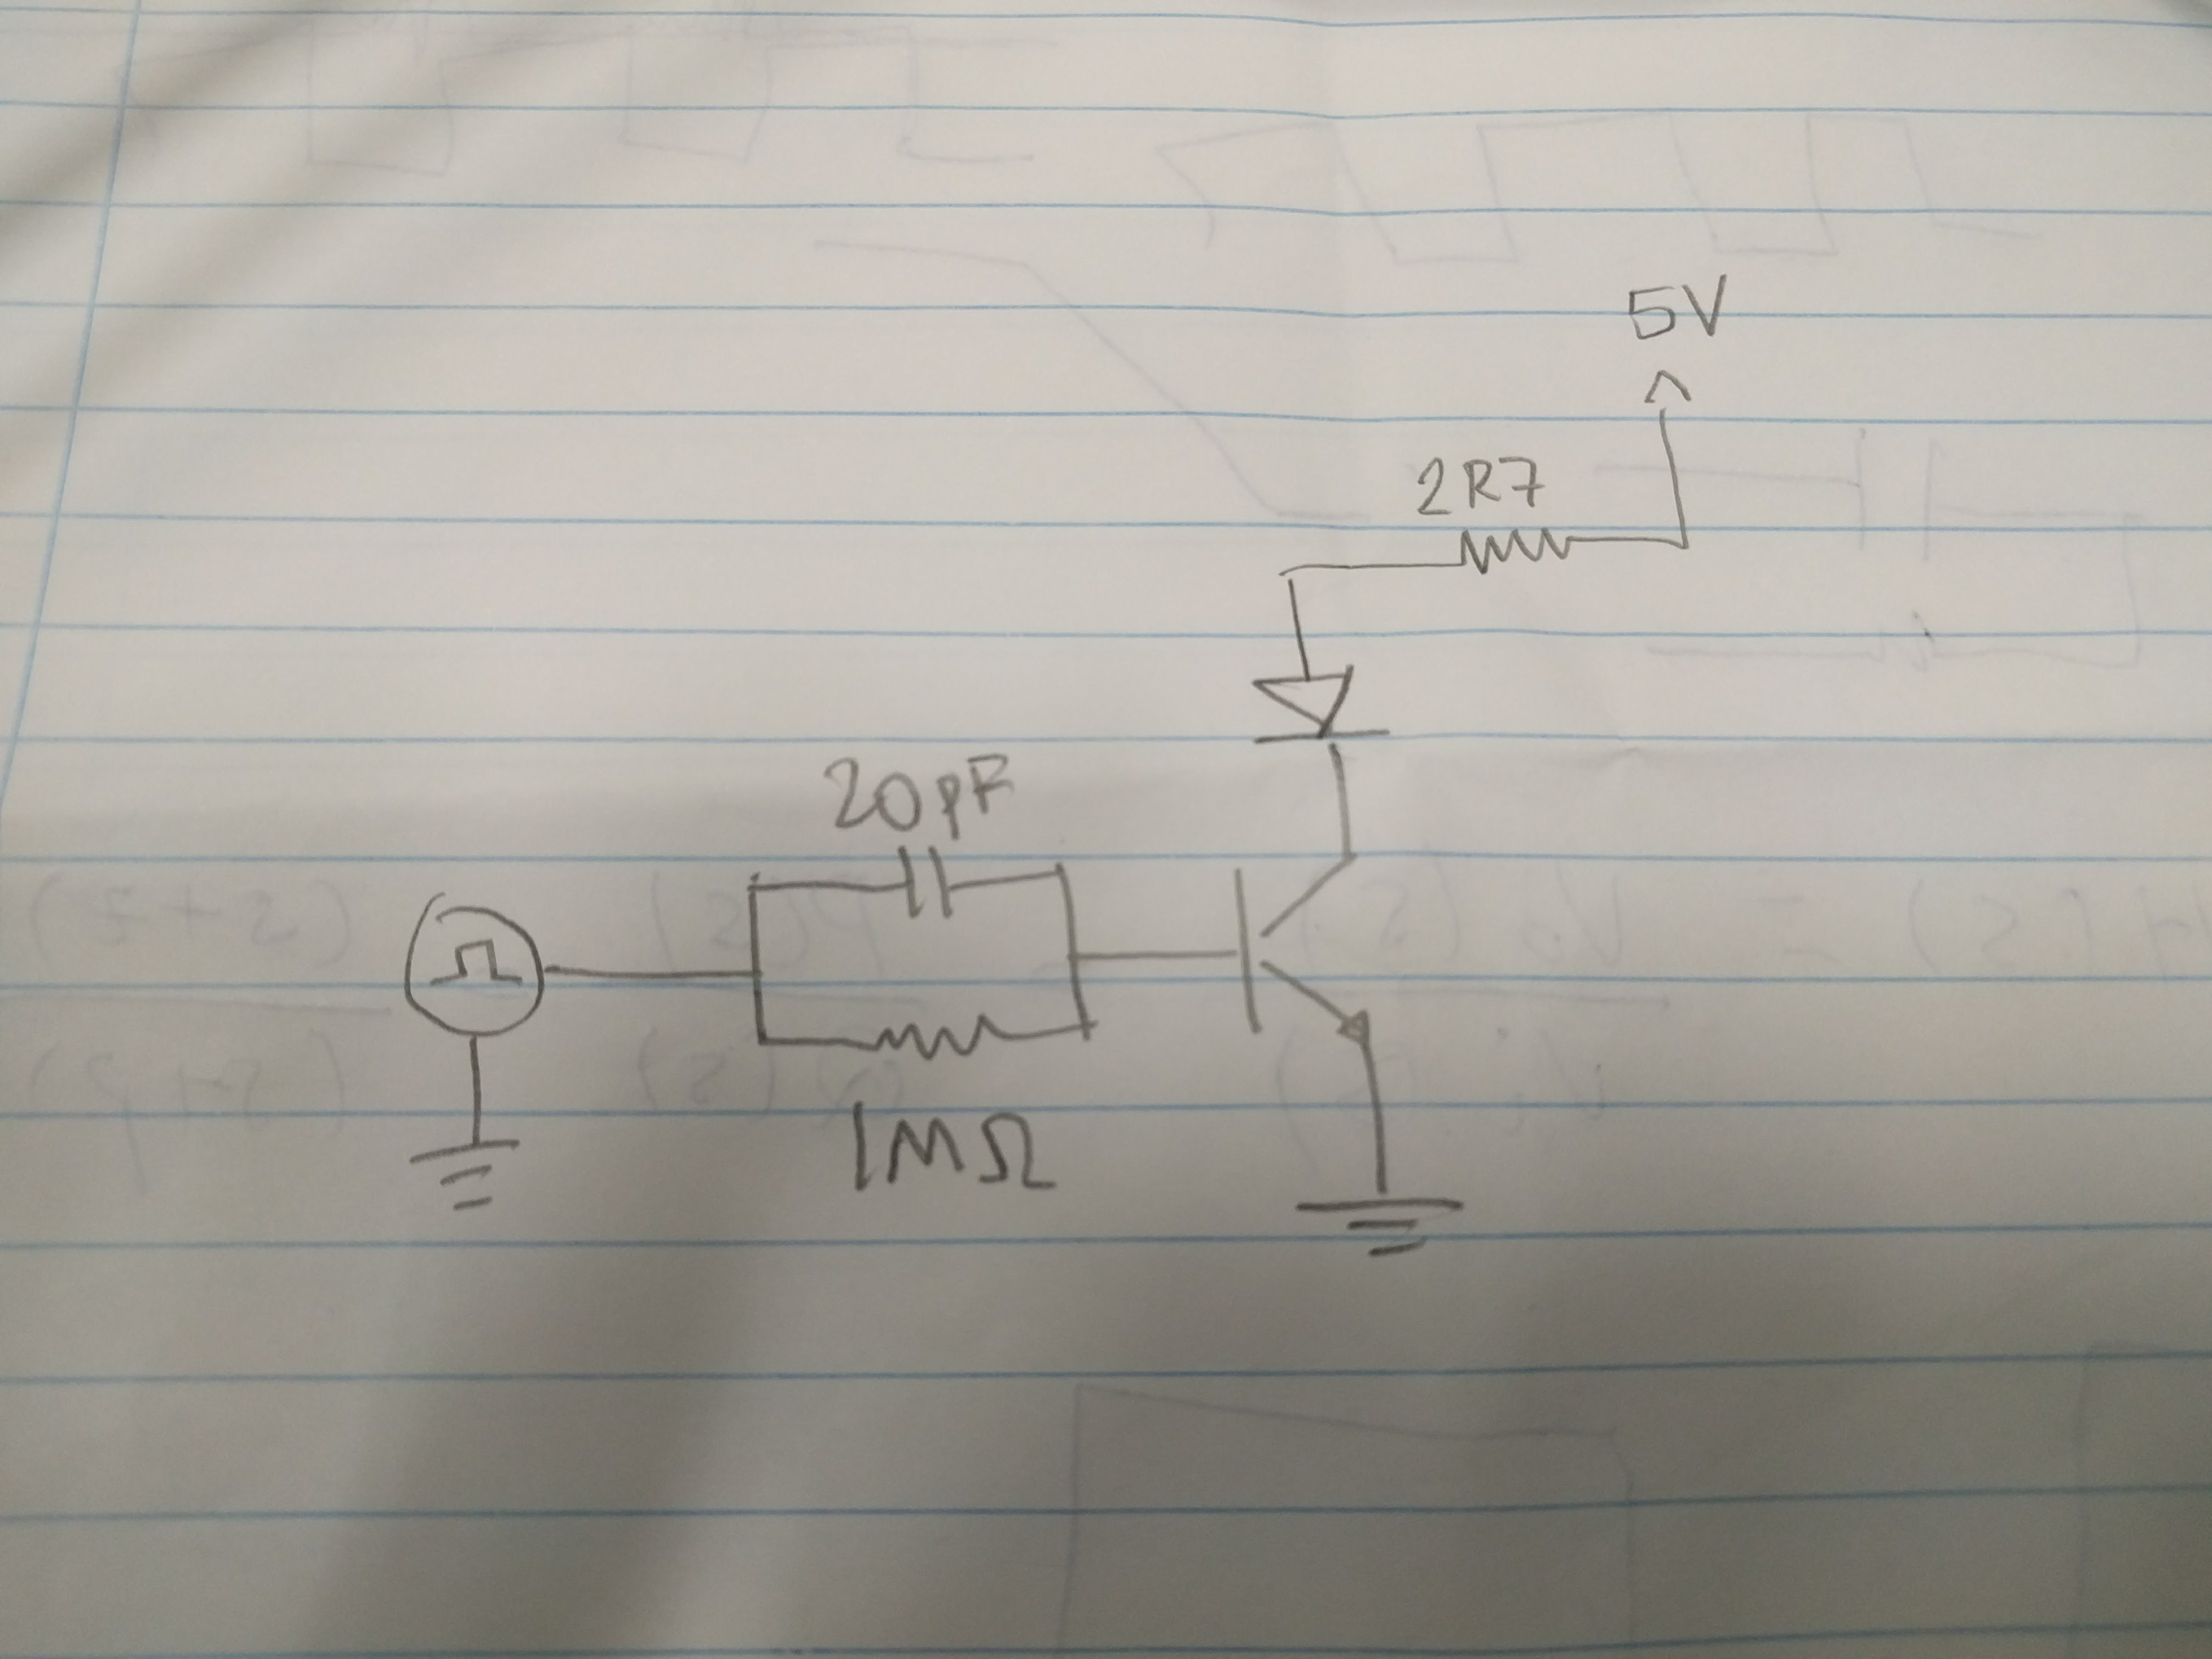 5V
2R7
20pF
1MΩ